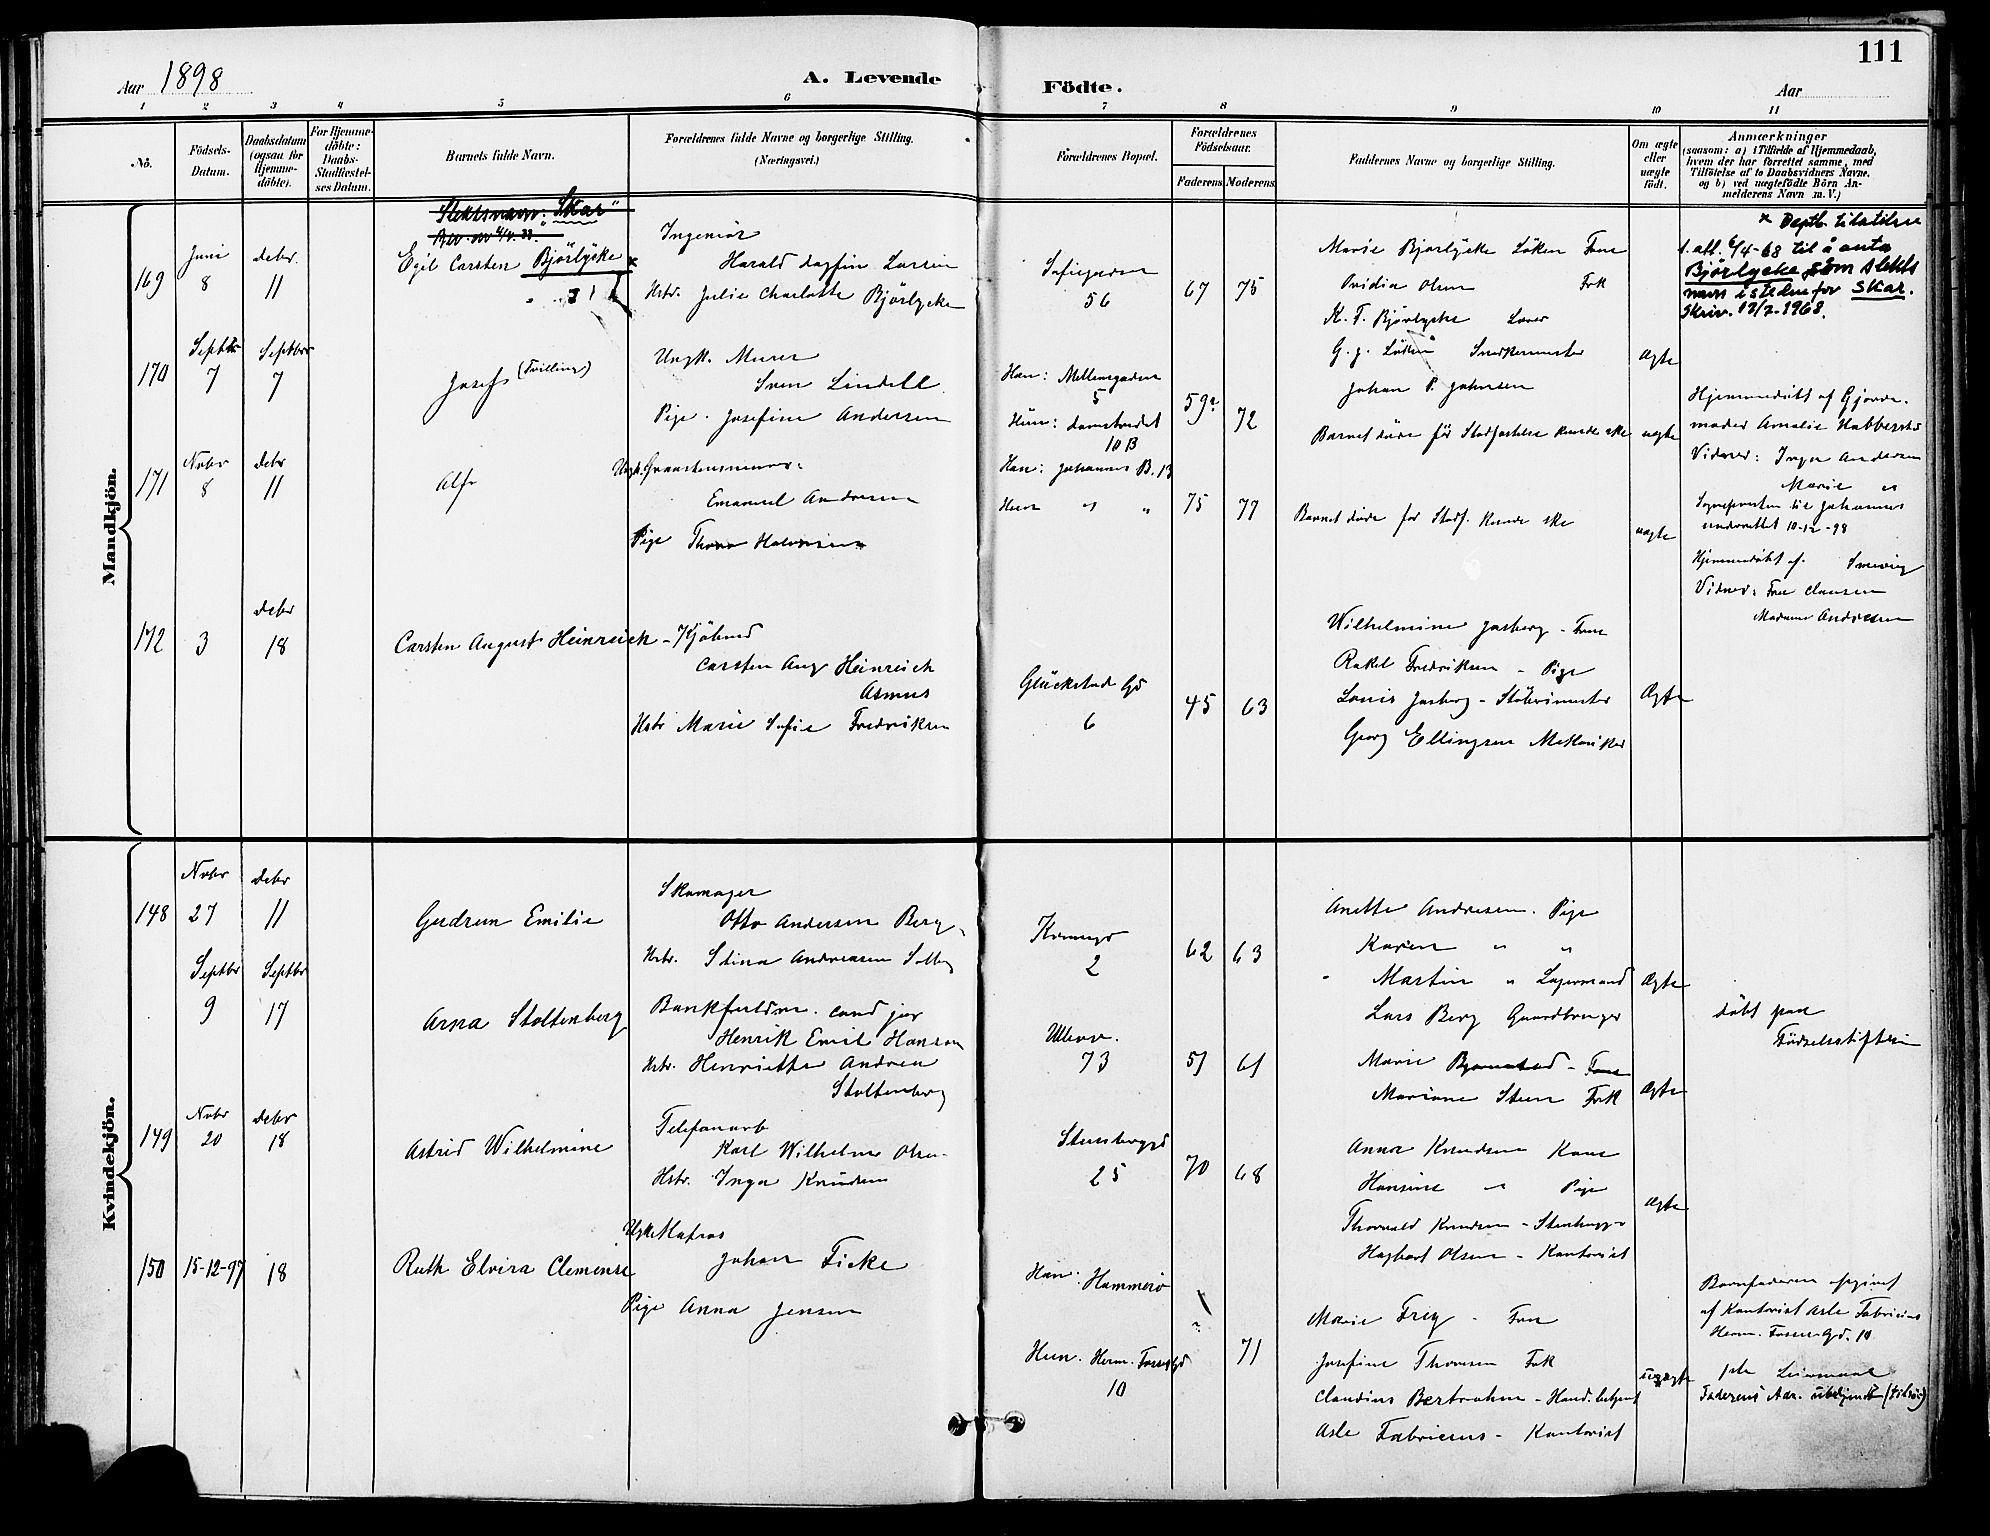 111
Aar 1898
A. Levende
Födte.
Aar
1 2 3 4 5 6 7 8 9 10 11
No.
Födsels-Datum.
Daabsdatum (ogsaa for Hjemme-döbte).
For Hjemme-döbte: Daabs-Stadfæstel-ses Datum.
Barnets fulde Navn.
Forældrenes fulde Navne og borgerlige Stilling.
(Næringsvei.)
Forældrenes Bopæl.
Forældrenes Födselsaar.
Faderens Moderens
Faddernes Navne og borgerlige Stilling.
Om ægte eller uægte födt.
Anmærkninger
(saasom: a) i Tilfælde af Hjemmedaab,
hvem der har forrettet samme, med
Tilföielse af to Daabsvidners Navne,
og b) ved uægtefödte Börn An-
melderens Navn m. V.)
Mandkjön.
Slektsnavn: "Skar"
169
Juni
8
Debr.
11
Egil Carsten Bjørlycke ×
Ingeniør
Harald Dagfin Larsen
Hstr. Julie Charlotte Bjørlycke
Sofiegaden
56
67
75
Marie Bjørlycke Løken Frue
Ovidia Olsen Frk
K. F. Bjørlycke
G. J. Løken Snedkermester
Johan P. Johnsen
Ægte
× Deptb. tilatelse
t. att. 6/4-68 til å anta
Bjørlycke som slekts
navn istedenfor Skar.
Skriv. 13/7-1968.
170
Septbr
7
Septbr
7
Josef (Tvilling)
Ungk. Murer
Sven Lindell
Pige. Josefine Andersen
Han: Møllergaden
5
Hun: Damstredet
10 B
59?
72
Barnet døde før Stadfæstelse kunde ske
uægte
Hjemmedøbt af Gjorde-
moder Amalie
Vidner: Inga Andersen
Marie "
171
Nobr
8
Debr
11
Alf
Ungk.
Emanuel Andersen
Pige Thora Halvorsen
Han: Johannes B. 13
Hun " "
75
77
Barnet døde før Stadf. kunde ske
uægte
Sognepresten til Johannes
underrettet 10-12-98
Hjemmedøbt af
Vidner: Frue Clausen
Madame Andersen
172
3
Debr
18
Carsten August Heinreich
Kjøbmd
Carsten Aug Heinreich
Asmus
Hstr Marie Sofie Fredriksen
Glückstad Gd
6
45
63
Wilhelmine Jasberg - Frue
Rakel Fredriksen - Pige
Louis Jasberg - Støberimester
Georg Ellingsen Mekaniker
Ægte
Kvindekjön.
148
Nobr
27
Debr
11
Gudrun Emilie
Skomager
Otto Andersen Berg
Hstr. Stina Andreasen
2
62
63
Anette Andresen. Pige
Karen " "
Martin " Lagermand
Lars Berg Gaardbruger
Ægte
Septbr
9
Septbr
17
Arna Stoltenberg
cand jur
Henrik Emil Hansen
Hstr. Henriette Andrea
Stoltenberg
Ullevv.
73
51
61
Marie Bjørnstad - Frue
Mariane Steen Frk
Ægte
Døbt paa
Fødselsstiftelsen
149
Nobr
20
Debr
18
Astrid Wilhelmine
Telefonarb
Karl Wilhelm Olsen
Hstr. Inga Knudsen
Stensberggd
25
70
68
Anna Knudsen Kone
Hansine " Pige
Thorvald Knudsen - Stenhugger
Hagbart Olsen - Kontorist
Ægte
150
15-12-97
18
Ruth Elvira Clemense
Ungk Matros
Johan Ficke
Pige Anna Jensen
Han. Hammerö
Hun. Herm. Fossgd
10
?
71
Marie Frey - Frue
Josefine Thoresen Frk
Claudius Bertrahm - Handl.betjent
Asle Fabricius - Kontorist
uægte
Barnefaderen opgivet
af Kontorist Asle Fabricius
Herm. Fossens Gd. 10
1ste Leiermaal
Faderens Adr. ubekjendt (tilsøs)